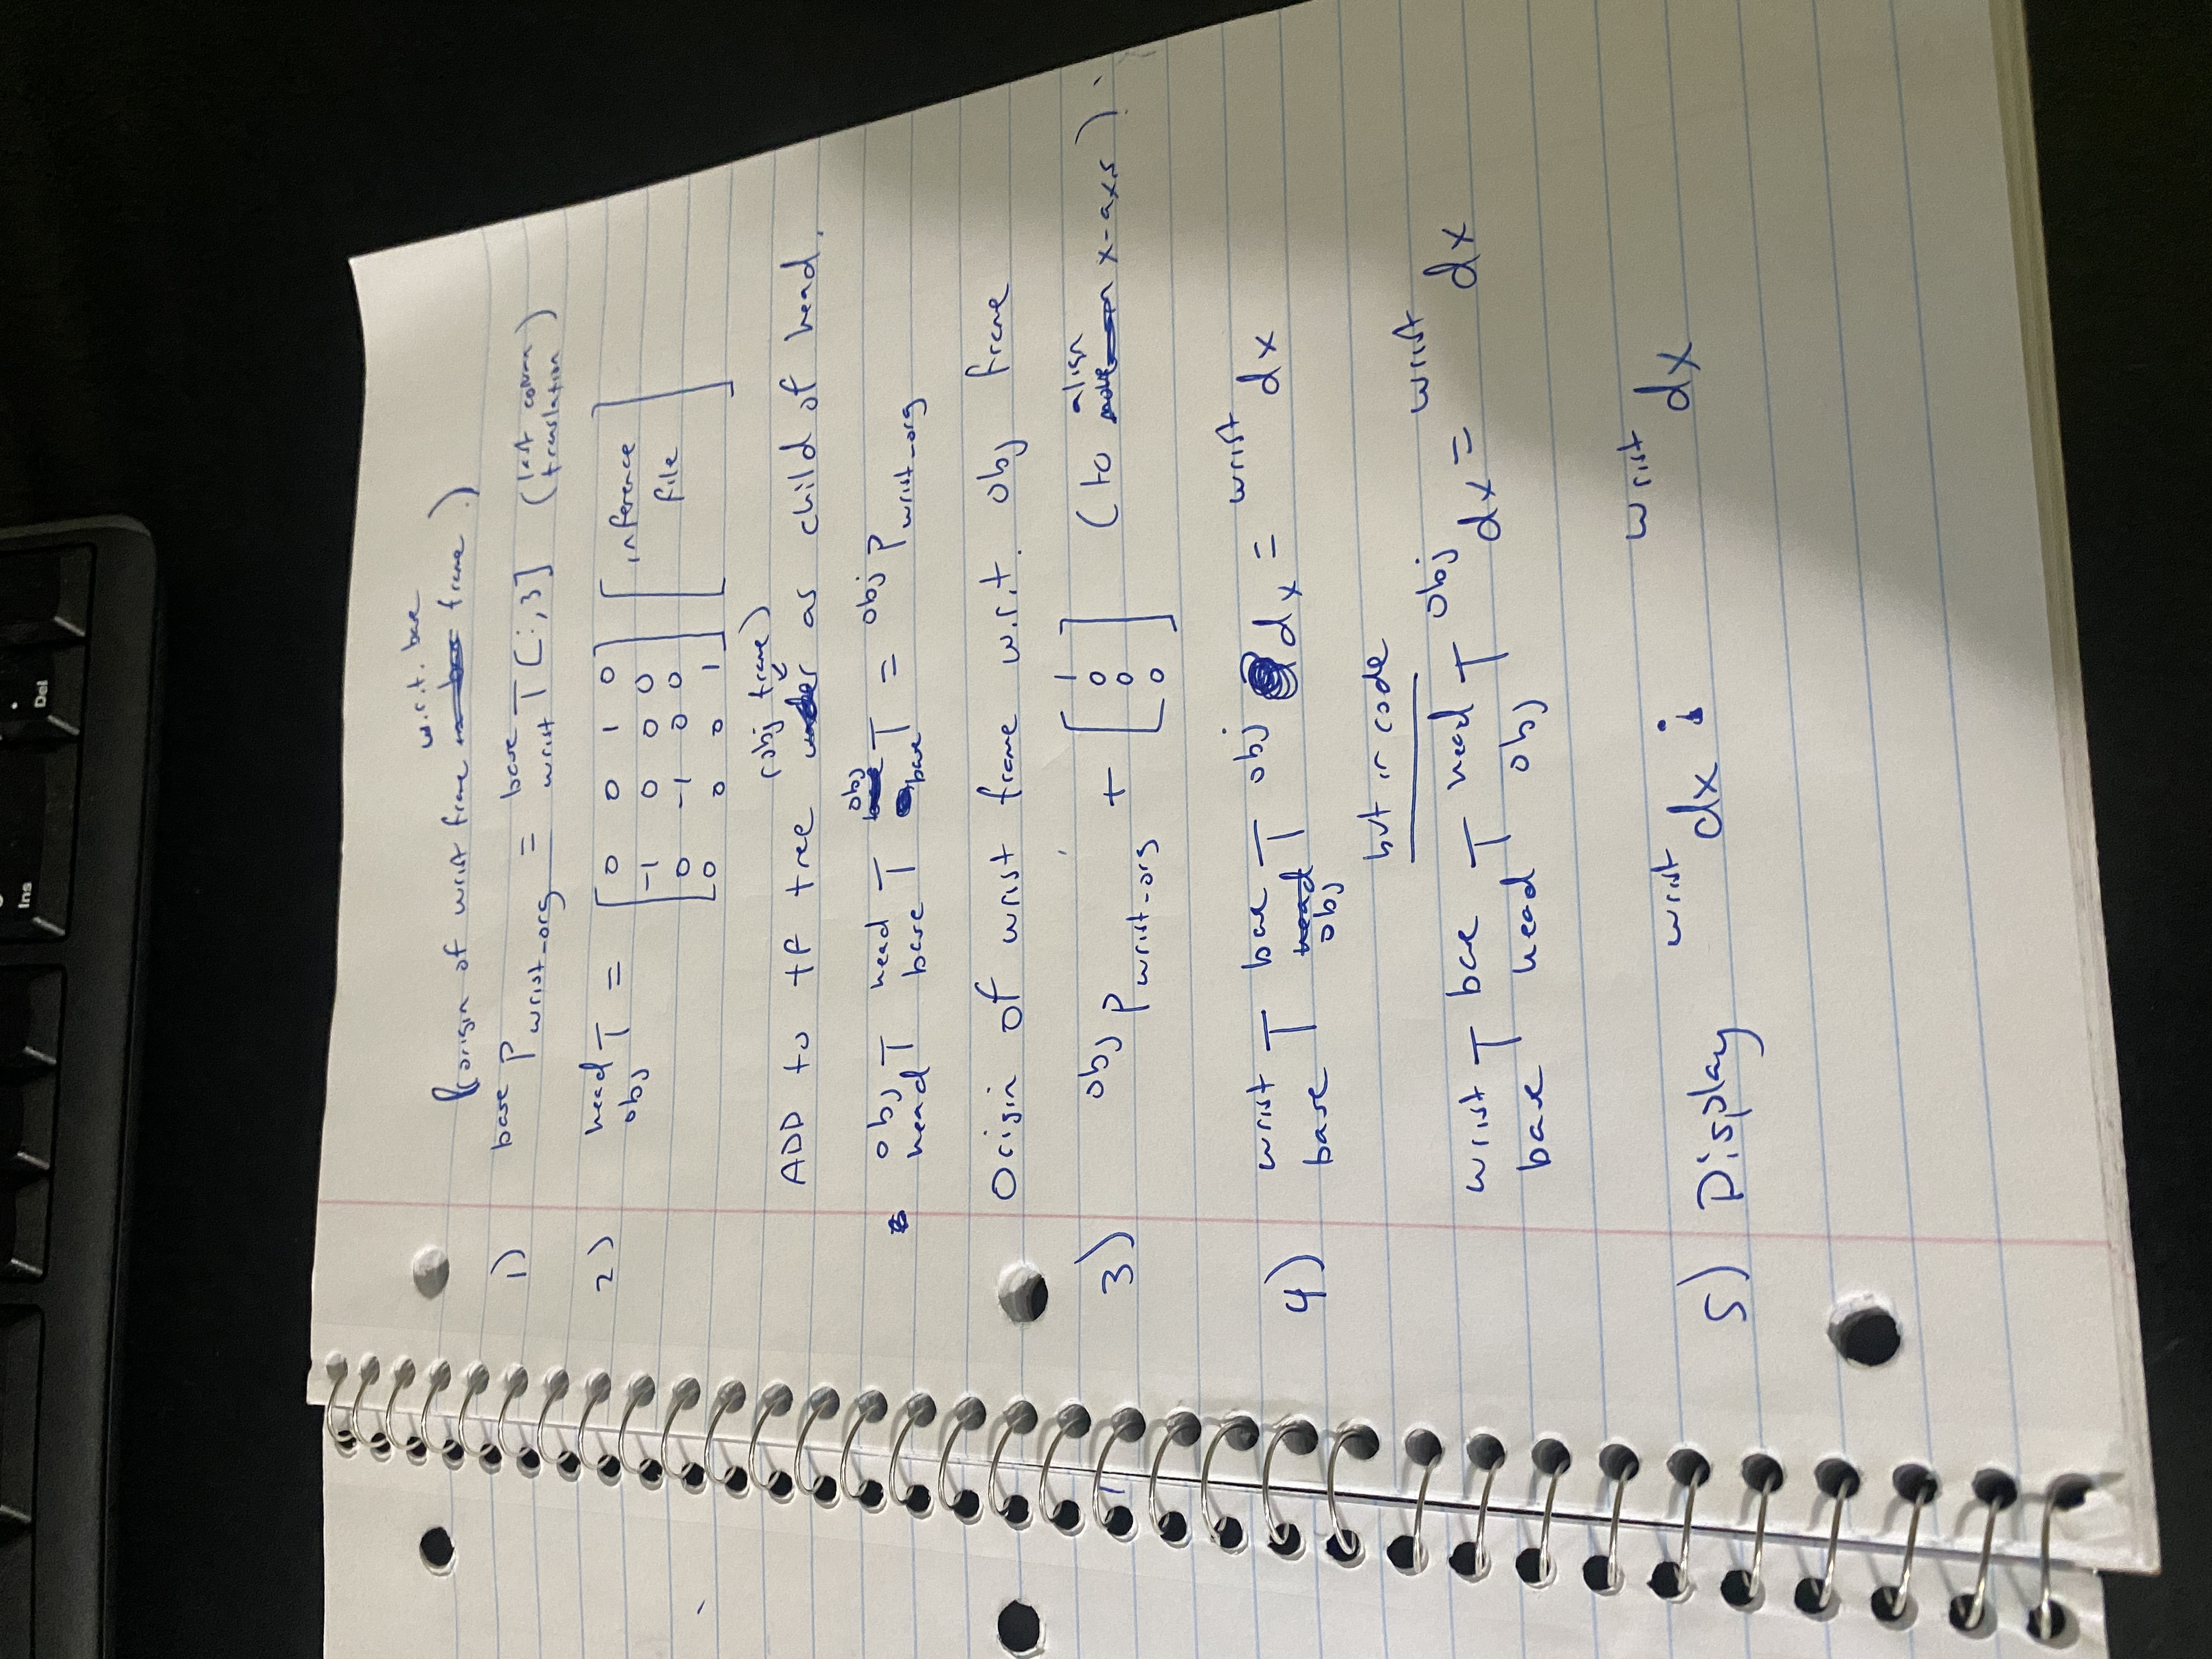 Ins
Del
w.r.t. base
(origin of wrist frame frame.)
1) base P wrist_org = base wrist T [:,3] (last column translation)
2) head obj T = [ 0 0 1 0 ] [ inference
-1 0 0 0 file ]
0 -1 0 0
0 0 0 1
(obj frame)
ADD to tf tree as child of head.
obj head T head base T obj base T = obj P wrist_org
Origin of wrist frame w.r.t. obj frame
3) obj P wrist_org + [ 1 0 0 0 ] (to align x-axis)
4) wrist base T base obj T obj dx = wrist dx
but in code
wrist base T base head T head obj T obj dx = wrist dx
5) Display wrist dx i wrist dx